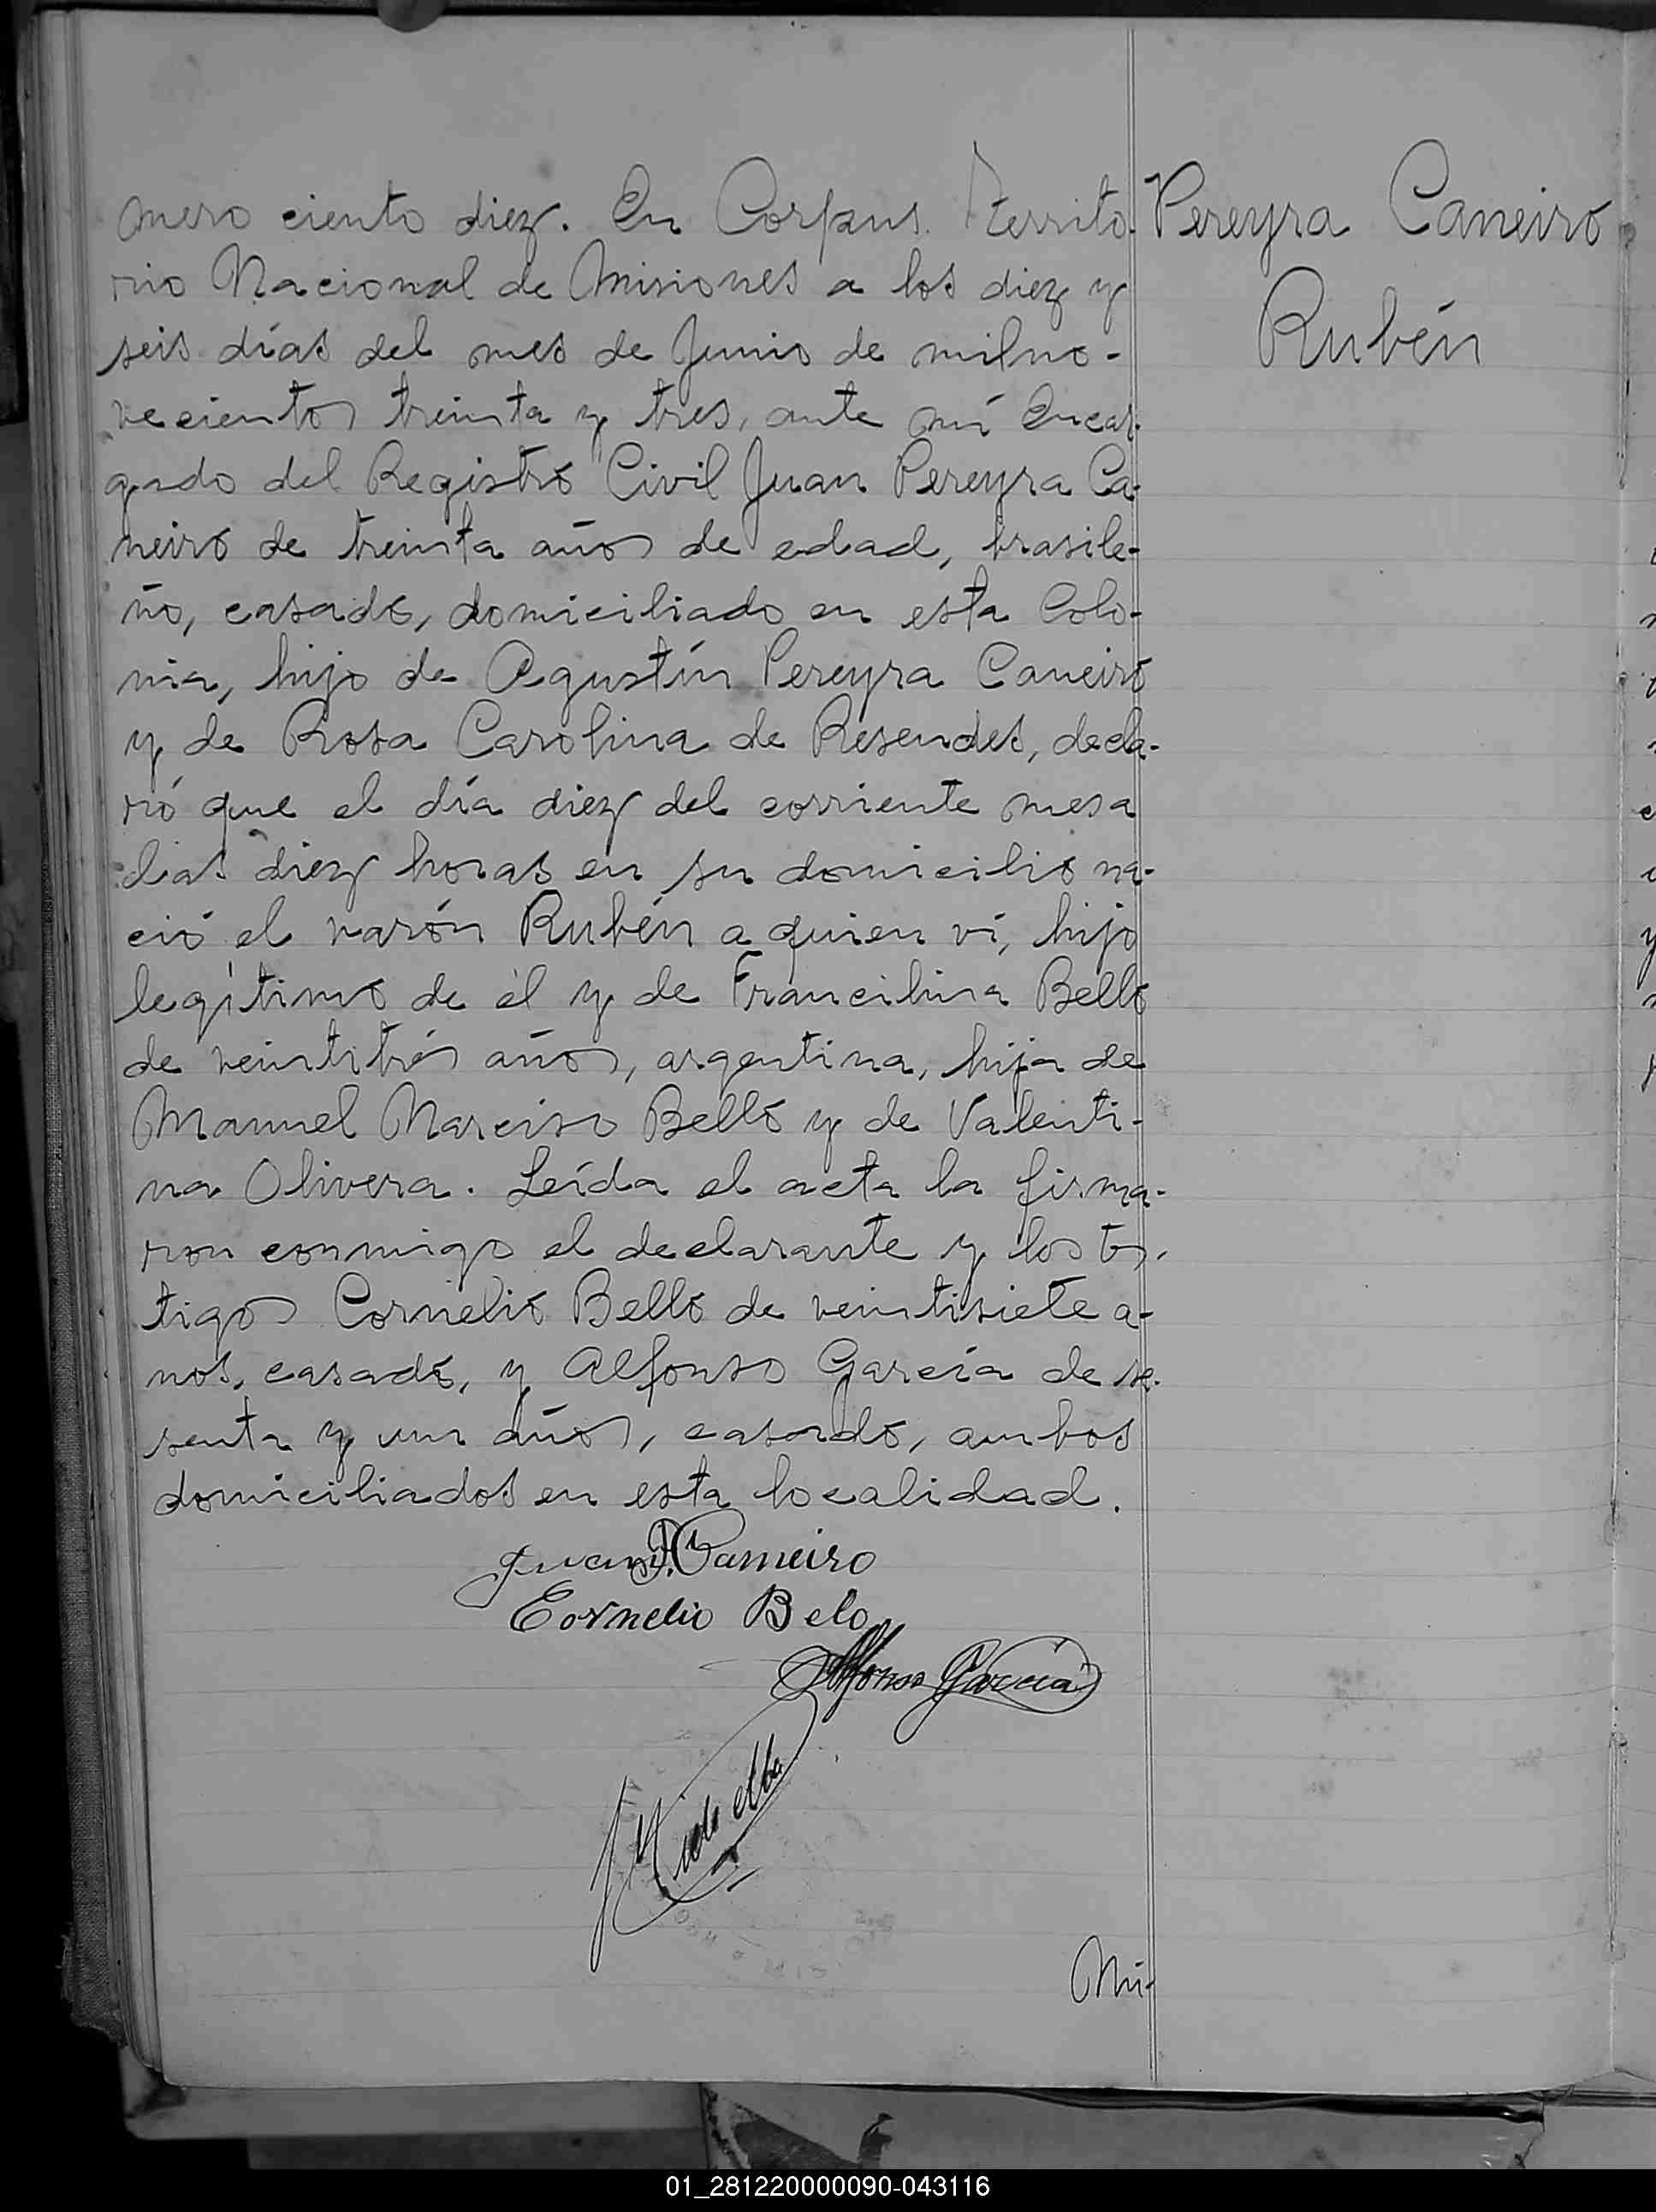 mero ciento diez. En Corpus. Territo-
Pereyra Caneiro
rio Nacional de Misiones a los diez y
Rubén
seis días del mes de Junio de milno-
vecientos treinta y tres, ante mí Encar-
gado del Registro Civil Juan Pereyra Ca-
neiro de treinta años de edad, brasile-
ño, casado, domiciliado en esta Colo-
nia, hijo de Agustín Pereyra Caneiro
y de Rosa Carolina de Resendes, decla-
ró que el día diez del corriente mes a
las diez horas en su domicilio na-
ció el varón Rubén a quien ví, hijo
legítimo de él y de Francilina Bello
de veintitrés años, argentina, hija de
Manuel Narciso Bello y de Valenti-
na Olivera. Leída el acta la firma-
ron conmigo el declarante y los tes-
tigos Cornelio Bello de veintisiete a-
nos, casado, y Alfonso García de se-
senta y un años, casado, ambos
domiciliados en esta localidad.
Juan P. Carneiro
Cornelio Belo
Alfonso García
Nú-
01_281220000090-043116